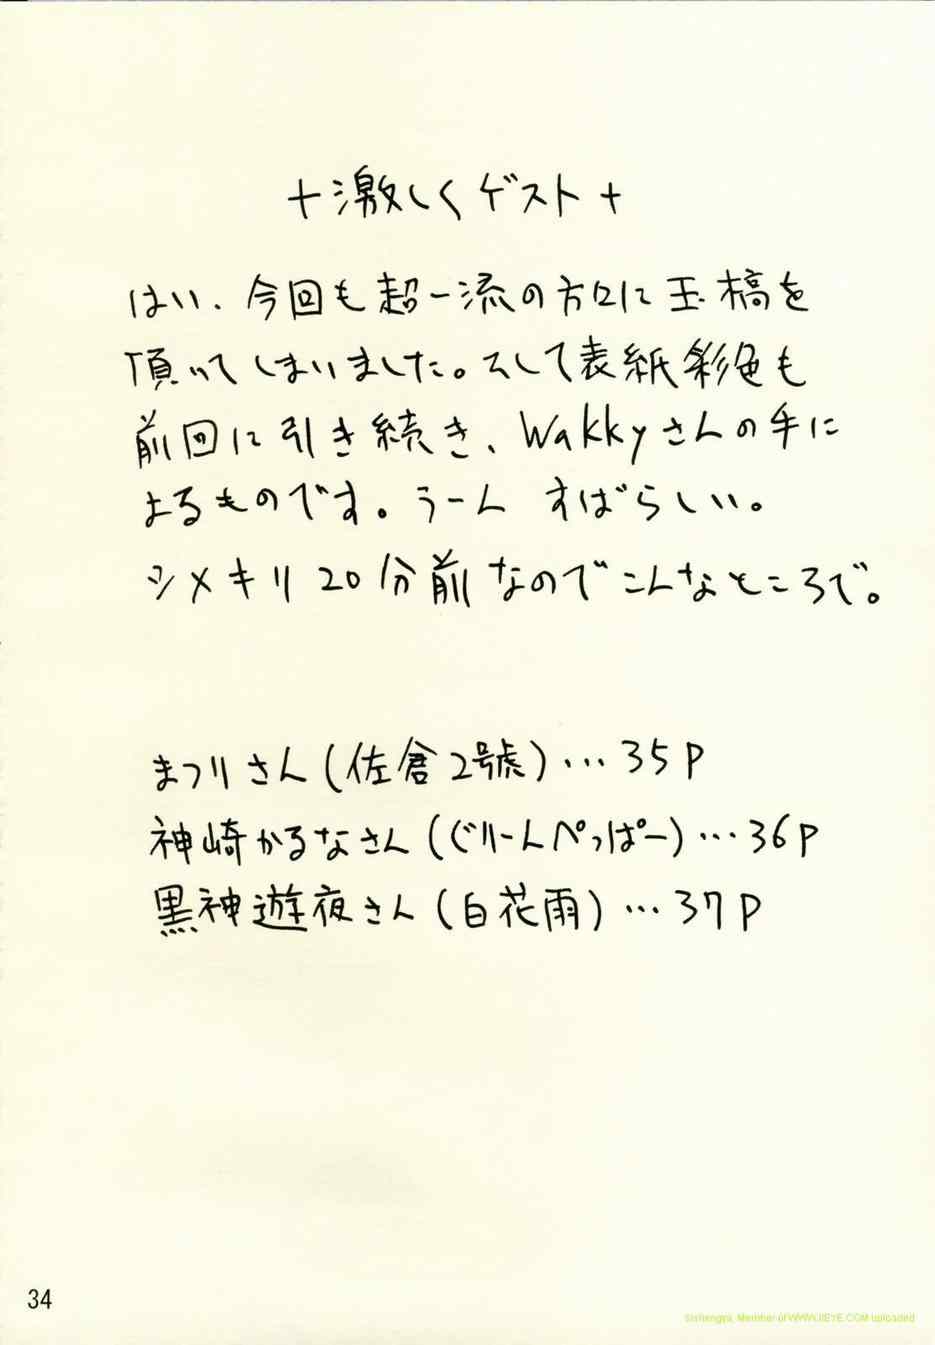 +激しくゲスト+
はい、今回も超一流の方々に玉稿を
頂いてしまいました。そして表紙彩色も
前回に引き続き、Wakkyさんの手に
よるものです。うーん すばらしい。
シメキリ20分前なのでこんなところで。
まつりさん(佐倉2號)…35P
神崎かるなさん(ぐりーんぺっぱー)…36P
黒神遊夜さん(白花雨)…37P
34
Sishengya, Member of WWW.IIEYE.COM uploaded